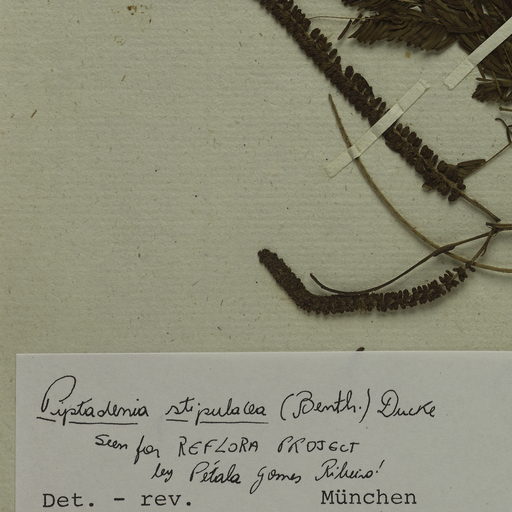 Piptadenia stipulacea (Benth.) Ducke
Seen for REFLORA PROJECT
by Pétala Gomes Ribeiro!
Det. - rev. München